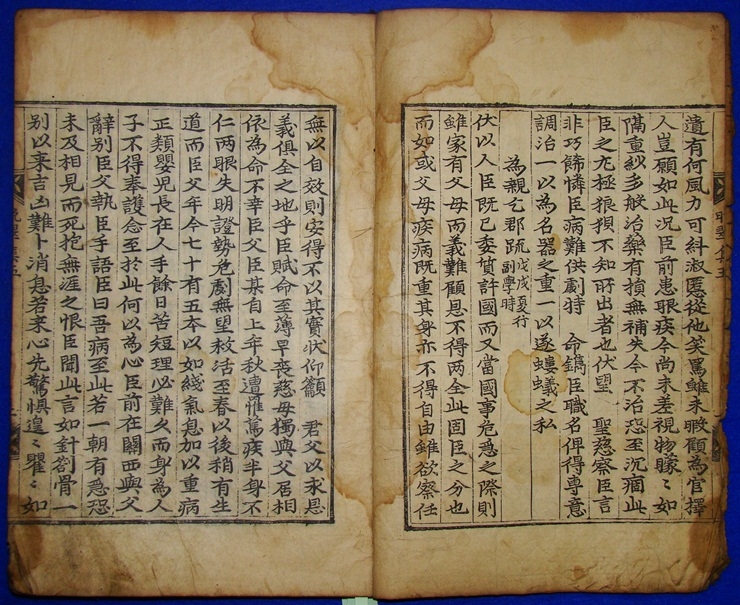 遺有何風力可糾淑慝從他笑罵雖未暇顧為官擇
人豈願如此況臣前患眼疾今尚未差視物矇〻如
隔重紗多般治藥有損無補失今不治恐至沉痼此
臣之尤極狼狽不知所出者也伏望 聖慈察臣言
非巧飾憐臣病難供劇特 命鐫臣職名俾得專意
調治一以為名器之重一以遂螻蟻之私
為親乞郡疏 戊戌夏行副學時
伏以人臣既已委質許國而又當國事危急之際則
雖家有父母而義難顧恩不得兩全此固臣之分也
而如或父母疾病既重其身亦不得自由雖欲察任
無以自效則安得不以其實狀仰籲 君父以求恩
義俱全之地乎臣賦命至薄早喪慈母獨與父居相
依為命不幸臣父臣某自上年秋遭罹篤疾半身不
仁兩眼失明證勢危劇無望救活至春以後稍有生
道而臣父年今七十有五本以如綫氣息加以重病
正類嬰兒長在人手餘日苦短理必難久而身為人
子不得奉護念至於此何以為心臣前在關西與父
辭別臣父執臣手語臣曰吾病至此若一朝有急恐
未及相見而死抱無涯之恨臣聞此言如針劄骨一
別以来吉凶難卜消息若来心先驚惧遑〻瞿〻如